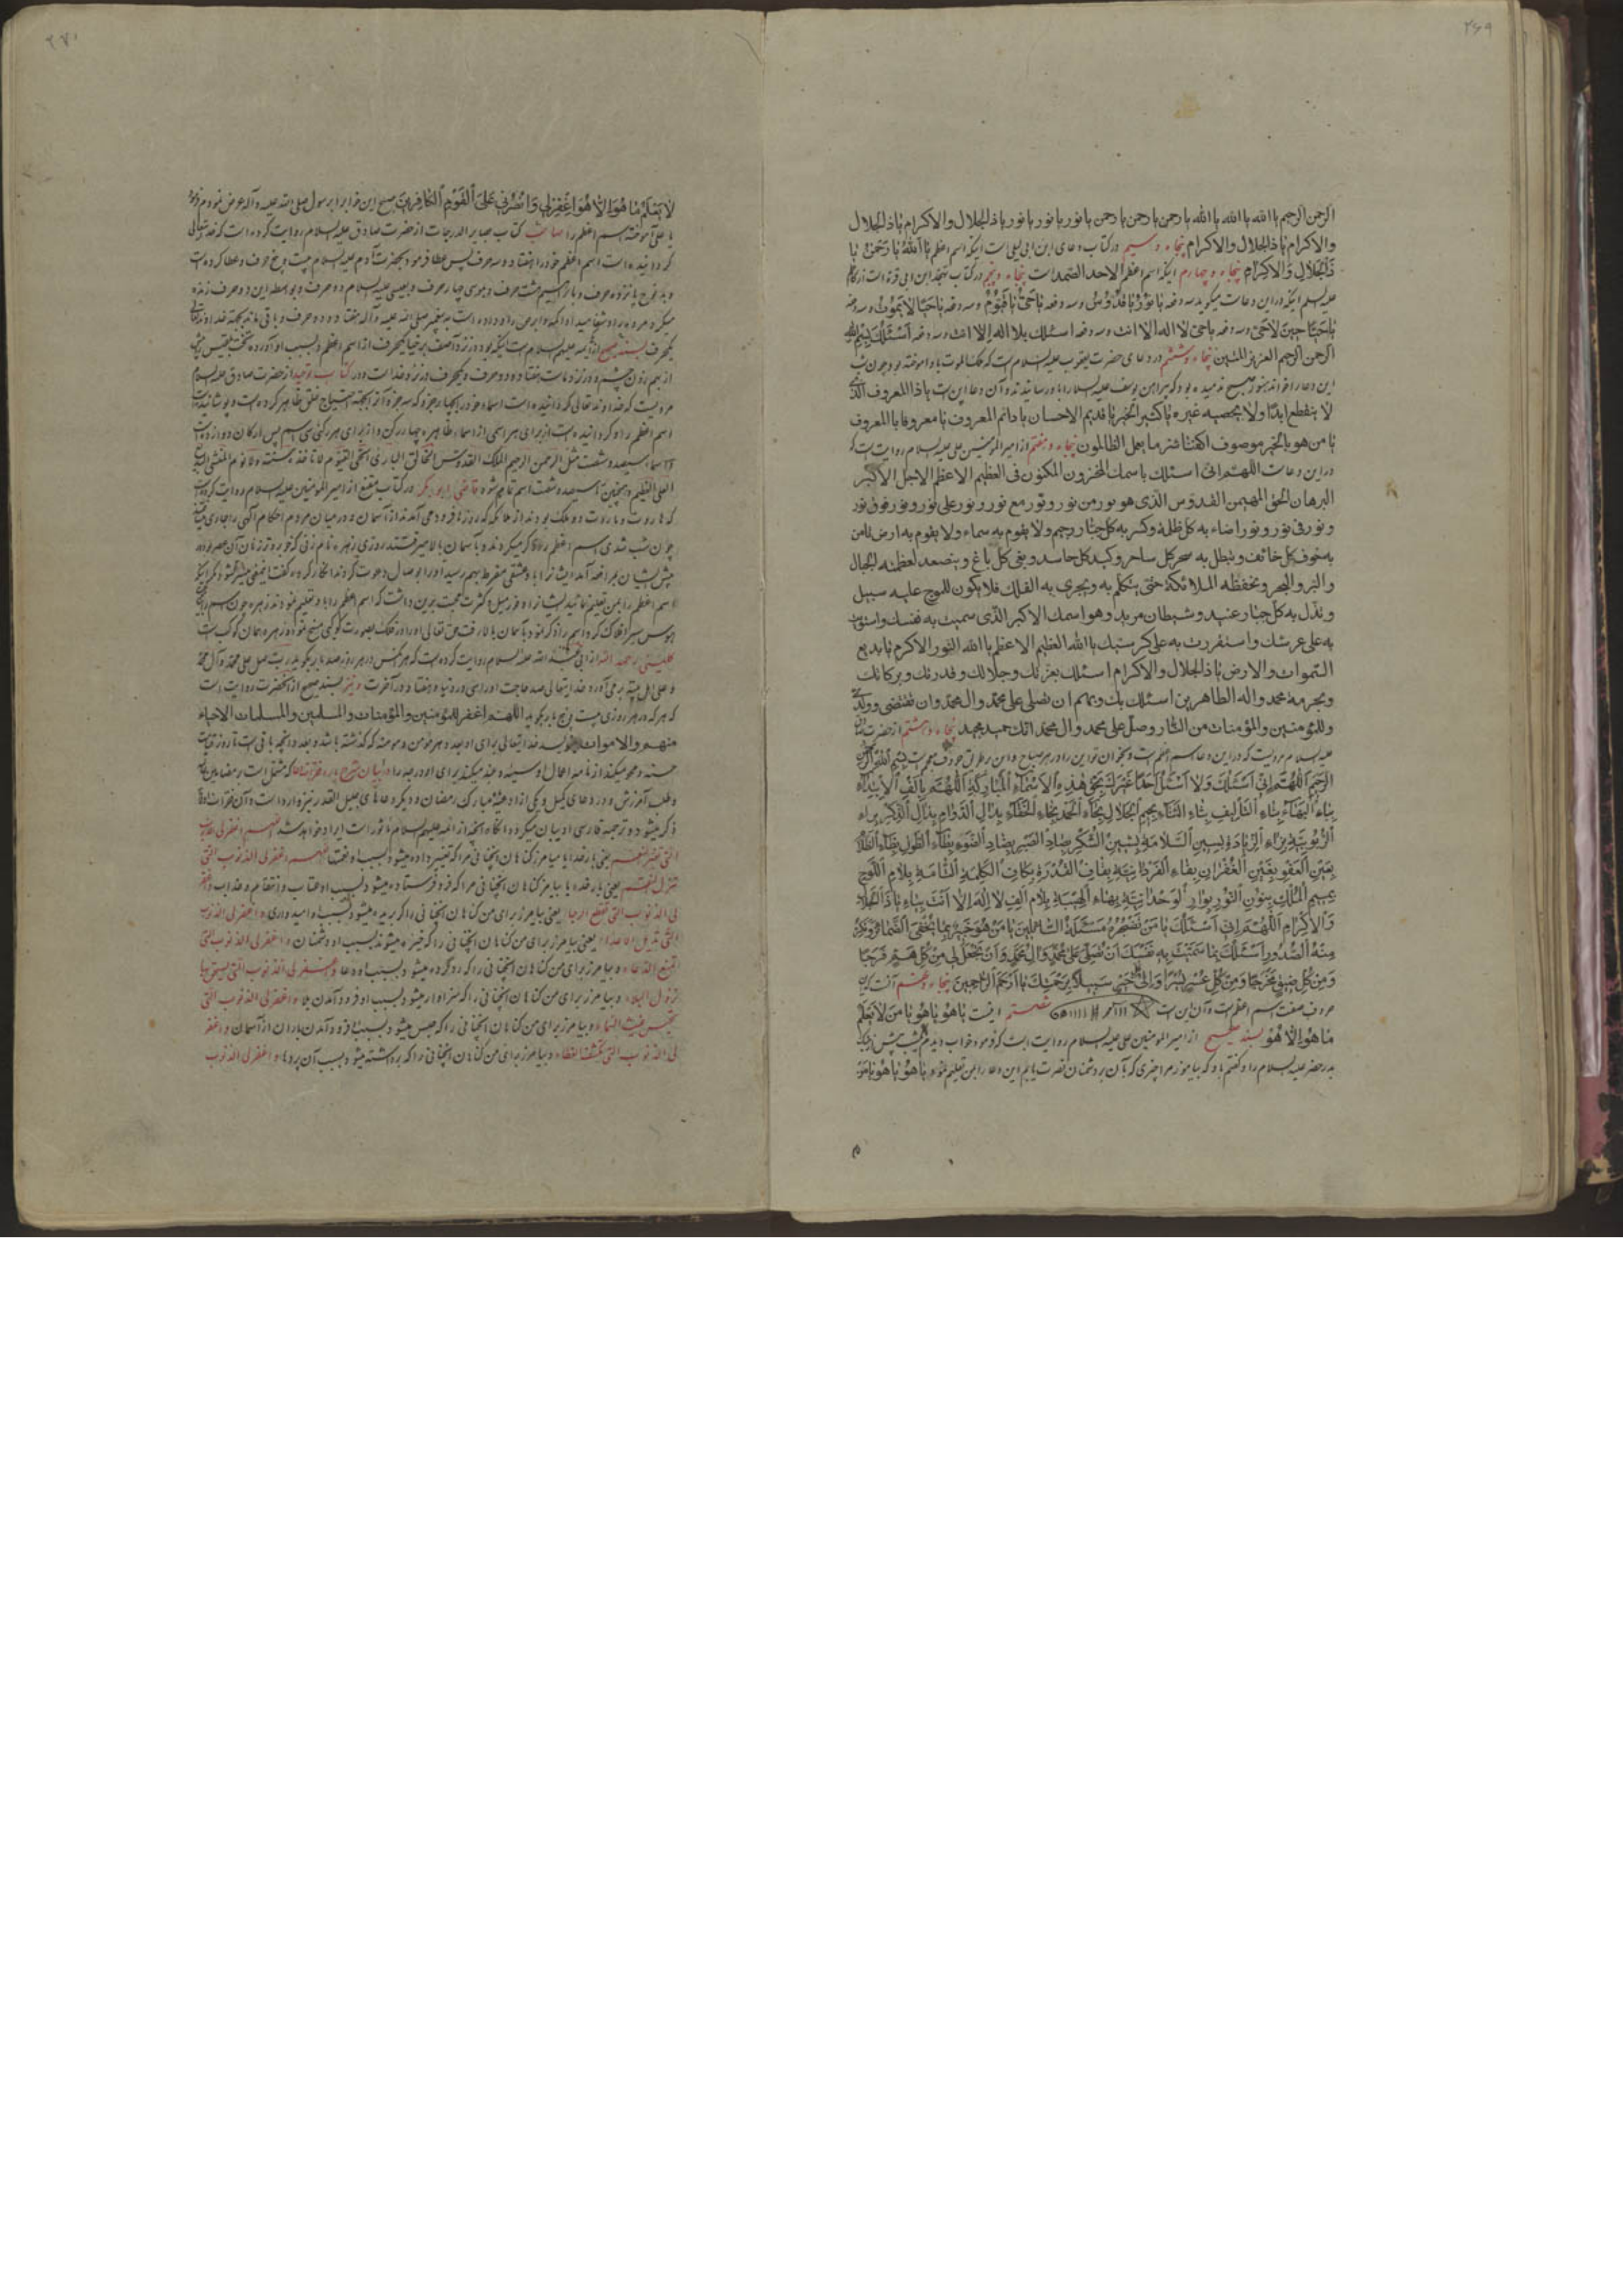 ۲۶۹
الرحمن الرحیم یا الله یا الله یا الله یا رحمن یا رحمن یا رحمن یا نور یا نور یا نور یا ذالجلال والاکرام یا ذالجلال
والاکرام یا ذالجلال والاکرام پنجاه و سیم در کتاب دعای ابن ابی لیلی است اینکه اسم اعظم یا اَللهُ یا رَحْمنُ یا
ذَالْجَلالِ وَالْاِکْرامِ پنجاه و چهارم اینکه اسم اعظم الاحد الصمد است پنجاه و پنجم در کتاب
علیه السلم اینکه در این دعاست میگوید سه دفعه یا نُورُ یا قُدُّوسُ و سه دفعه یا حَیُّ یا قَیُّومُ و سه دفعه یا حَیًّا لا یَمُوتُ و سه دفعه
یا حَیًّا حینَ لا حَیَّ و سه دفعه یا حی لا اله الا انت و سه دفعه اسئلك بلا اله الا انت و سه دفعه اَسْئَلُكَ بِسْمِ اللهِ
الرحمن الرحیم العزیز المتین پنجاه و ششم در دعای حضرت یعقوب علیه السلام است که ملک الموت باو آموخته بود چون شب
این دعا را خواند هنوز صبح ندمیده بود که پیراهن یوسف علیه السلام را باو رسانیدند و آن دعا این است یا ذا المعروف الذی
لا ینقطع ابدًا ولا یحصیه غیره یا کثیر الخیر یا قدیم الاحسان یا دائم المعروف یا معروفا بالمعروف
یا من هو بالخیر موصوف اکفنا شر ما یعمل الظالمون پنجاه و هفتم از امیر المؤمنین علی علیه السلام روایت است که
در این دعاست اللهم انی اسئلك باسمك المخزون المکنون فی العظیم الاعظم الاجل الاکبر
البرهان الحق المهیمن القدوس الذی هو نور من نور و نور مع نور و نور علی نور و نور فوق نور
و نور فی نور و نور اضاء به کل ظلمة وکسر به کل جبّار رجیم ولا یقوم به سماء ولا یقوم به ارض یأمن
به خوف کل خائف و یبطل به سحر کل ساحر و کید کل حاسد و بغی کل باغ و یتصدع لعظمته الجبال
والبر والبحر و تحفظه الملائکة حتی یتکلم به و یجری به الفلك فلا یکون للموج علیه سبیل
و تذل به کل جبّار عنید و شیطان مرید وهو اسمك الاکبر الّذی سمیت به نفسك واستویت
به علی عرشك واستقررت به علی کرسیك یا الله العظیم الاعظم یا الله النور الاکرم یا بدیع
السموات والارض یا ذالجلال والاکرام اسئلك بعزتك وجلالك وقدرتك وبرکاتك
وبحرمة محمد وآله الطاهرین اسئلك بك وبهم ان تصلی علی محمد وآل محمد وان تعتقنی ووالدی
وللمؤمنین والمؤمنات من النار وصل علی محمد وآل محمد انك حمید مجید پنجاه و هشتم از حضرت
علیه السلام مرویست که در این دعا اسم اعظم است و بخوان تو این را در هر صباح و این بطریق حروف معجم است بِسْمِ اللهِ الرَّحْمنِ
الرَّحیمِ اَللّهُمَّ اِنّی اَسْئَلُكَ وَلا اَسْئَلُ اَحَدًا غَیْرَكَ بِحَقِّ هذِهِ الْاَسْماءِ الْمُبارَکَةِ اَللّهُمَّ بِاَلِفِ الْاِبْتِداءِ
بِباءِ الْبَهاءِ بِتاءِ التَّأْلیفِ بِثاءِ الثَّناءِ بِجیمِ الْجَلالِ بِحاءِ الْحَمْدِ بِخاءِ الْخَفاءِ بِدالِ الدَّوامِ بِذالِ الذِّکْرِ بِراءِ
الرُّبُوبِیَّةِ بِزاءِ الزِّیادَةِ بِسینِ السَّلامَةِ بِشینِ الشُّکْرِ بِصادِ الصَّبْرِ بِضادِ الضَّوْءِ بِطاءِ الطَّوْلِ بِظاءِ الظِّلِّ
بِعَیْنِ الْعَفْوِ بِغَیْنِ الْغُفْرانِ بِفاءِ الْفَرْدانِیَّةِ بِقافِ الْقُدْرَةِ بِکافِ الْکَلِمَةِ التّامَّةِ بِلامِ اللَّوْحِ
بِمیمِ الْمُلْكِ بِنُونِ النُّورِ بِواوِ الْوَحْدانِیَّةِ بِهاءِ الْهَیْبَةِ بِلامِ اَلِفِ لا اِلهَ اِلّا اَنْتَ بِیاءِ یا ذَالْجَلالِ
وَالْاِکْرامِ اَللّهُمَّ اِنّی اَسْئَلُكَ یا مَنْ لا تَضْجُرُهُ مَسْئَلَةُ السّائِلینَ یا مَنْ هُوَ خَبیرٌ بِما تُخْفِی الضَّمائِرُ وَتَکُنُّ
مِنْهُ الصُّدُورُ اَسْئَلُكَ بِما سَمَّیْتَ بِهِ نَفْسَكَ اَنْ تُصَلِّیَ عَلی مُحَمَّدٍ وَآلِ مُحَمَّدٍ وَاَنْ تَجْعَلَ لی مِنْ کُلِّ هَمٍّ فَرَجًا
وَمِنْ کُلِّ ضیقٍ مَخْرَجًا وَمِنْ کُلِّ عُسْرٍ یُسْرًا وَاِلی کُلِّ خَیْرٍ سَبیلًا بِرَحْمَتِكَ یا اَرْحَمَ الرّاحِمینَ پنجاه و نهم
حروف صفت اسم اعظم است و آن این است شصتم اینست یا هُوَ یا هُوَ یا مَنْ لا یَعْلَمُ
ما هُوَ اِلّا هُوَ بسند صحیح از امیر المؤمنین علی علیه السلام روایت است که فرمود خواب دیدم شب پیش از جنگ
بدر خضر علیه السلام را و گفتم باو که بیاموز مرا چیزی که بآن بر دشمنان نصرت یابم این دعا را بمن تعلیم نمود یا هُوَ یا هُوَ یا مَنْ
۲۷۰
لا یَعْلَمُ ما هُوَ اِلّا هُوَ اِغْفِرْلی وَانْصُرْنی عَلَی الْقَوْمِ الْکافِرینَ صبح این خواب را برسول صلی الله علیه وآله عرض نمودم فرمود
یا علی آموخته اسم اعظم را صاحب کتاب بصایر الدرجات از حضرت صادق علیه السلام روایت کرده است که خدایتعالی
گردانیده است اسم اعظم خود را هفتاد و سه حرف پس عطا فرمود بحضرت آدم علیه السلام بیست و پنج حرف و عطا کرده است
و بنوح پانزده حرف و بابراهیم هشت حرف و بموسی چهار حرف و بعیسی علیه السلام دو حرف و بواسطه این دو حرف زنده
میکرد مرده را و شفا میداد اکمه و ابرص را و داده است به پیغمبر صلی الله علیه وآله هفتاد و دو حرف و باقی مانده بجهة خداوند تعالی
یکحرف بسند صحیح از ائمه علیهم السلام است اینکه بود در نزد آصف برخیا یکحرف از اسم اعظم و بسبب او آورد تخت بلقیس پیش
از بهم زدن چشم و در نزد ماست هفتاد و دو حرف و یکحرف در نزد خداست و در کتاب توحید از حضرت صادق علیه السلام
مرویست که خداوند تعالی گردانیده است اسماء خود را بچهار جزو که سه جزو آنرا بجهة احتیاج خلق ظاهر کرده است و پوشانیده است
اسم اعظم را و گردانیده است از برای هر اسمی از اسماء ظاهره چهار رکن و از برای هر رکنی سی اسم پس ارکان دوازده است
و اسماء سیصد و شصت مثل الرحمن الرحیم الملک القدوس الخالق البارئ الحی القیوم لا تأخذه سنة ولا نوم
العلی العظیم و همچنین تا سیصد و شصت اسم تمام شود در کتاب از امیر المؤمنین علیه السلام روایت کرده است
که هاروت و ماروت دو ملک بودند از ملائکه که روزها فرود می آمدند از آسمان و در میان مردم احکام الهی را جاری
چون شب شدی اسم اعظم را ذکر میکردند و بآسمان بالا میرفتند روزی زهره نام زنی که خوبروترین زنان آن عصر بود
پیش ایشان بمرافعه آمد ایشان را باو عشقی مفرط بهم رسید او را بوصال دعوت کردند انکار کرد و گفت
اسم اعظم را بمن تعلیم نمائید ایشان از وفور میل و کثرت محبت چون داشت که اسم اعظم را باو تعلیم نمودند زهره چون
هوس سیر افلاک کرد اسم را ذکر نمود بآسمان بالا رفت حق تعالی او را در فلک بصورت کوکبی مسخ نمود و زهره همان کوکب است
کلینی رحمه الله از ابی عبد الله علیه السلام روایت کرده است که هر کس در هر روز صد بار بگوید رب صل علی محمد و آل محمد
و علی اهل بیته بر می آورد خدایتعالی صد حاجت او را سی در دنیا و هفتاد در آخرت و نیز بسند صحیح از آنحضرت روایت است
که هر که در هر روزی بیست و پنج بار بگوید اللهم اغفر للمؤمنین والمؤمنات والمسلمین والمسلمات الاحیاء
منهم والاموات بنویسد خدایتعالی برای او بعدد هر مؤمن و مؤمنه که گذشته باشد و بعدد آنچه باقی است تا روز قیامت
حسنه و محو میکند از نامه اعمال او سیئه و بلند میکند برای او درجه را
و طلب آمرزش و در دعای کمیل و یکی از ادعیهٔ مبارک رمضان و دیگر دعاهای جلیل القدر نیز وارد است
ذکر میشود و ترجمه فارسی او بیان میگردد آنگاه آنچه از ائمه علیهم السلام مأثور است ایراد خواهد شد اللهم اغفرلی الذنوب
التی تغیر النعم یعنی بار خدایا بیامرز گناهان آنچنانی مرا که تغییر داده میشود بسبب او نعمت اللهم اغفرلی الذنوب التی
تنزل النقم یعنی بار خدایا بیامرز گناهان آنچنانی مرا که فرو فرستاده میشود بسبب او عتاب و انتقام و عذاب واغفر
لی الذنوب التی تقطع الرجاء یعنی بیامرز برای من گناهان آنچنانی را که بریده میشود بسبب او امیدواری واغفرلی الذنوب
التی تدیل الاعداء یعنی بیامرز برای من گناهان آنچنانی را که چیره میشوند بسبب او دشمنان واغفرلی الذنوب التی
الدعاء و بیامرز برای من گناهان آنچنانی را که رد کرده میشود بسبب او دعا واغفرلی الذنوب التی یستحق بها
نزول البلاء و بیامرز برای من گناهان آنچنانی را که سزاوار میشود بسبب او فرود آمدن بلاء واغفرلی الذنوب التی
تحبس غیث السماء و بیامرز برای من گناهان آنچنانی را که حبس میشود بسبب او فرود آمدن باران از آسمان واغفر
لی الذنوب التی تکشف الغطاء و بیامرز برای من گناهان آنچنانی را که برداشته میشود بسبب آن پردها واغفرلی الذنوب